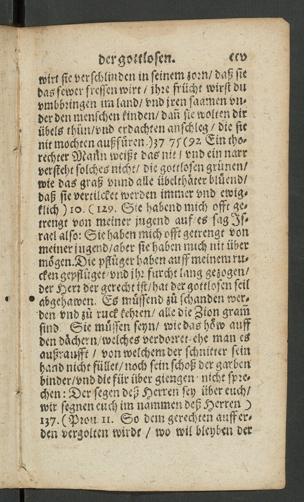 der gottlosen. ccv
wirt sie verschlinden in seinem zorn/ daß sie
das fewer fressen wirt / ihre frücht wirst du
vmbbringen im land/ vnd jren saamen vn-
der den menschen kinden/ dañ sie wolten dir
übels thůn/vnd erdachten anschleg / die sie
nit mochten außfüren.)37 75 (92 Ein tho-
rechter Mann weißt das nit / vnd ein narr
versteht solches nicht/ die gottlosen grünen/
wie das graß vnnd alle übelthäter blüend/
daß sie vertilcket werden immer vnd ewig-
klich ) 10. (129. Sie habend mich offt ge-
trengt von meiner jugend auf es sag Js-
rael also: Sie haben mich offt getrengt von
meiner jugend/aber sie haben mich nit über
mögen. Die pflüger haben auff meinem ru-
cken gepflüget/vnd ihr furcht lang gezogen/
der Herr der gerecht ist/hat der gottlosen seil
abgehawen. Es müssend zů schanden wer-
den vnd zů ruck kehren/ alle die Zion gram̃
sind Sie müssen seyn/ wie das höw auff
den dächern/welches verdorret ehe man es
außraufft / von welchem der schnitter sein
hand nicht füllet/noch sein schoß der garben
binder/vnd die für über giengen nicht spre-
chen: Der segen deß Herren sey über euch/
wir segnen euch im nammen deß Herren )
137. (Prou. 11. So dem gerechten auff er-
den vergolten wirdt / wo wil bleyben der